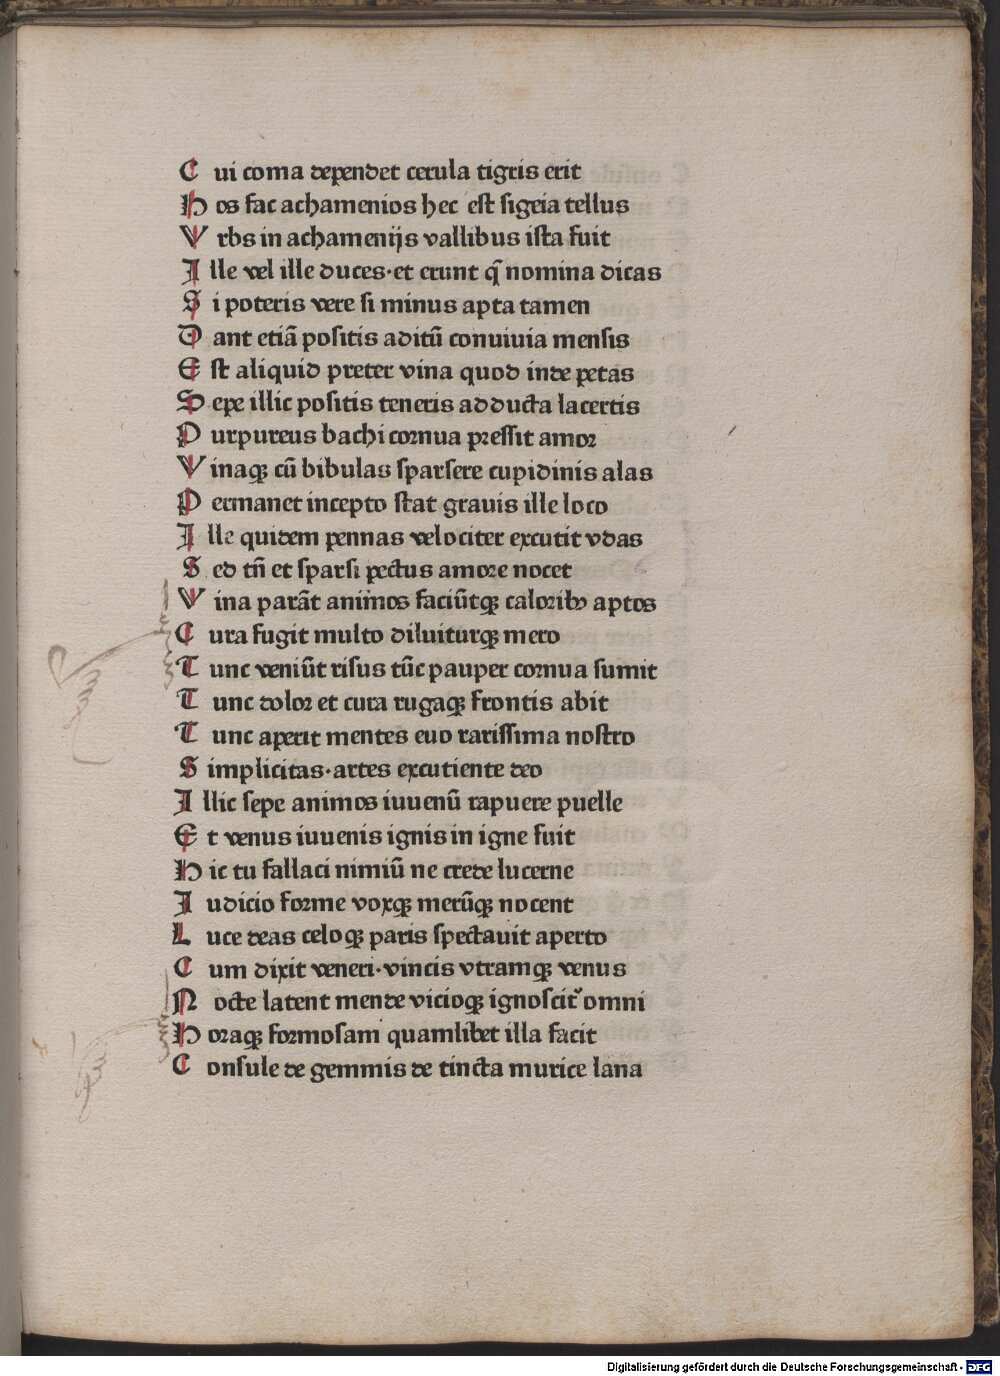 C ui coma dependet cerula tigris erit
H os fac achamenios hec est sigeia tellus
V rbs in achamenijs vallibus ista fuit
I lle vel ille duces·et erunt q̄ nomina dicas
S i poteris vere si minus apta tamen
D ant etiā positis aditū conuiuia mensis
E st aliquid preter vina quod inde petas
S epe illic positis teneris adducta lacertis
P urpureus bachi cornua pressit amor
V inaqꝫ cū bibulas sparsere cupidinis alas
P ermanet incepto stat grauis ille loco
I lle quidem pennas velociter excutit vdas
S ed tn̄ et sparsi pectus amore nocet
V ina parāt animos faciūtqꝫ caloribꝰ aptos
C ura fugit multo diluiturqꝫ mero
T unc veniūt risus tūc pauper cornua sumit
T unc dolor et cura rugaqꝫ frontis abit
T unc aperit mentes euo rarissima nostro
S implicitas·artes excutiente deo
I llic sepe animos iuuenū rapuere puelle
E t venus iuuenis ignis in igne fuit
H ic tu fallaci nimiū ne crede lucerne
I udicio forme voxqꝫ merūqꝫ nocent
L uce deas celoqꝫ paris spectauit aperto
C um dixit veneri·vincis vtramqꝫ venus
N octe latent mende vicioqꝫ ignoscit᷑ omni
H oraqꝫ formosam quamlibet illa facit
C onsule de gemmis de tincta murice lana
Digitalisierung gefördert durch die Deutsche Forschungsgemeinschaft - DFG